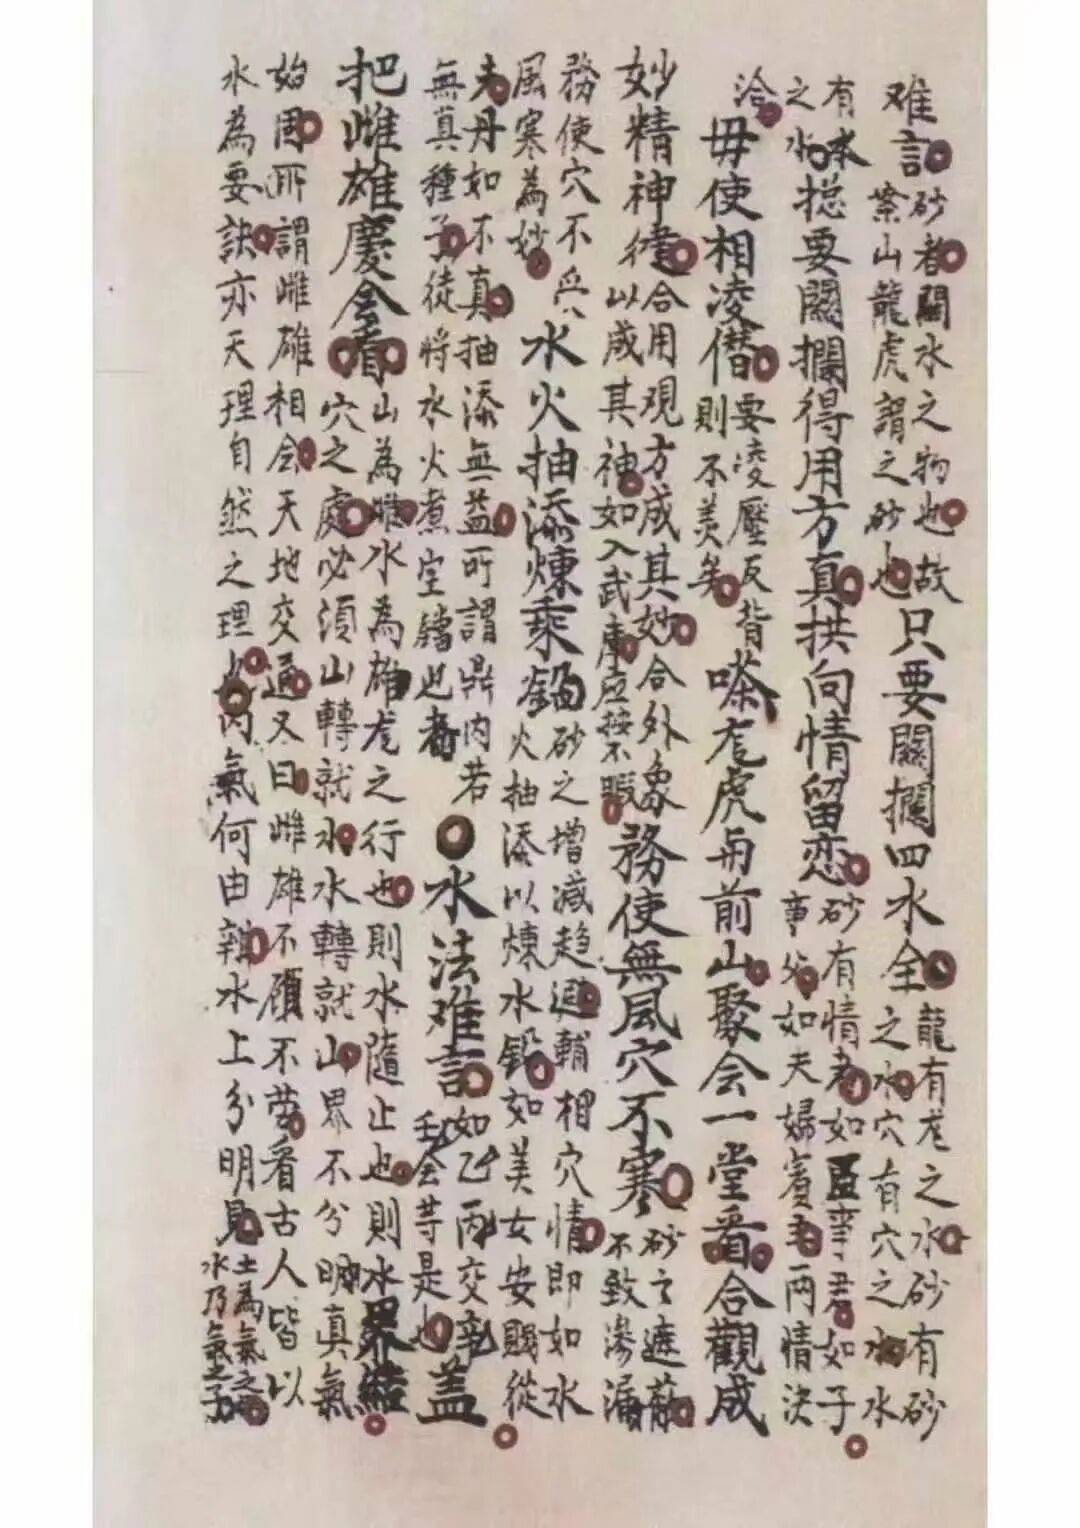 难言
砂者關水之物也故
案山龍虎謂之砂也
只要關攔四水全
龍有龙之水砂有砂
之水穴有穴之水水
有水
之水
捴要關攔得用方真拱向情留恋
砂有情者如臣事君如子
事父如夫婦賓主兩情決
洽
毋使相凌僭
要凌壓反背
則不美矣
嗏龙虎与前山聚会一堂看合觀成
妙精神徤
合用观方成其妙合外象
以成其神如入武庫应接不暇
務使無風穴不寒
砂之遮蔽
不致滲漏
務使穴不受
風寒為妙
水火抽添煉汞鉛
砂之增減趋避輔相穴情即如水
火抽添以煉水鉛如美女安賤從
夫丹如不真抽添無益所謂鼎内若
無真種子徒將水火煮空鐺也者
水法难言
如乙丙交
壬会等是也
盖
把雌雄慶会看
山為雌水為雄龙之行也則水隨止也則水界
穴之處必須山轉就水水轉就山界不分明真氣
始固所謂雌雄相会天地交通又曰雌雄不顧不劳看古人皆以
水為要訣亦天理自然之理也内氣何由雜水上分明見
土為氣之母
水乃氣之子